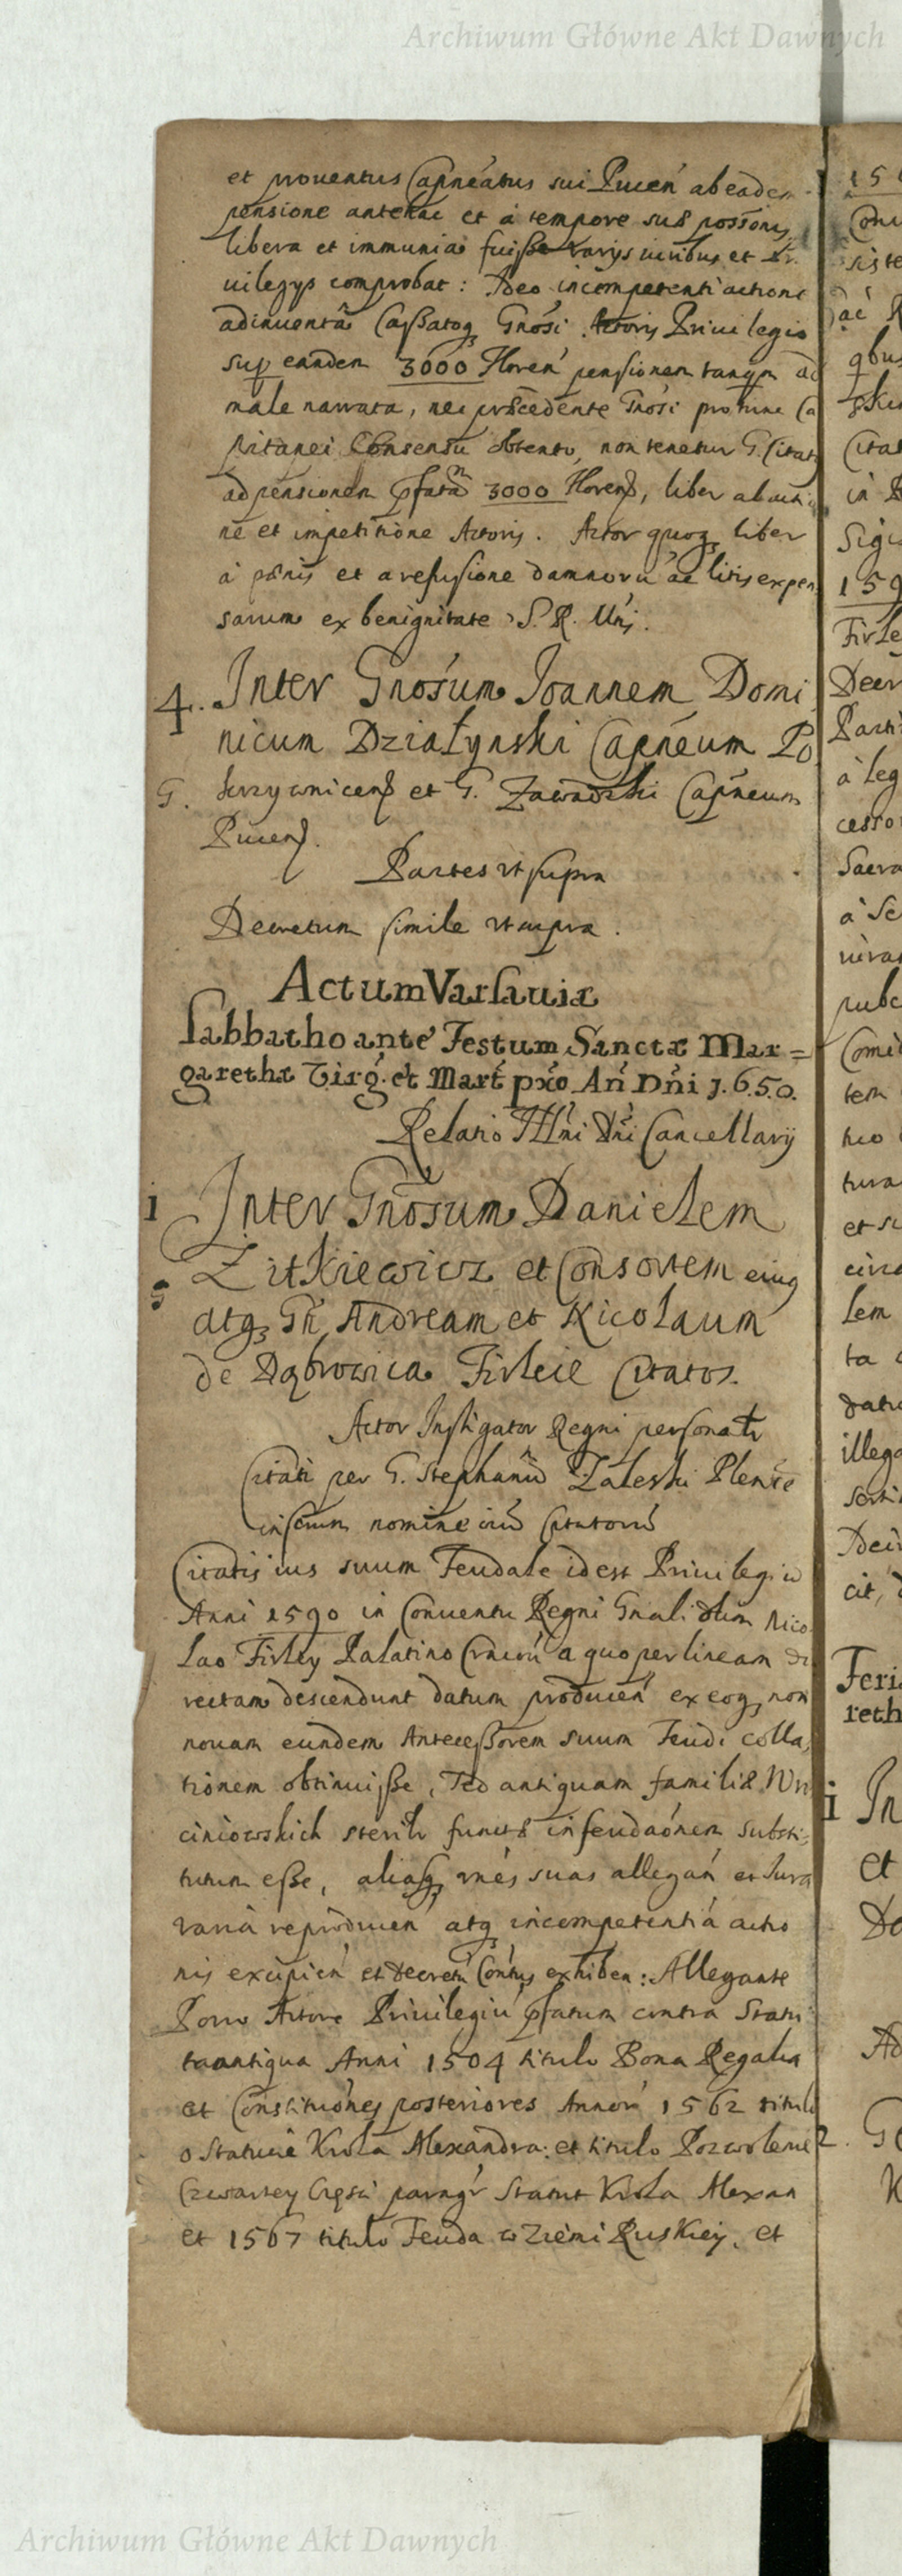 Archiwum Główne Akt Dawnych
et prouentus Capneatus sui Pucen ab eadem
pensione antehac et à tempore suæ possonis
libera et immunia fuisse varijs iuribus et pri
uilegijs comprobat: Ideo incompetenti actione
adinuentâ Cassatoq Gnosi Actoris Priuilegio
sup eandem 3000 Floren pensionem tanqm ad
male narrata, nec præcedente Gnosi pro tunc Ca
pitanei Consensu obtento, non tenetur G. Citat
ad pensionem pfatam 3000 Floren, liber ab acti
ne et impetitione Actoris. Actor quoq liber
à pænis et a refusione damnorū ac litis expen
sarum ex benignitate S. R. Mtis.
4. Inter Gnosum Joannem Domi
nicum Działynski Capneum Po
G. krzywnicen et G. Zawadzki Capneum
Pucen.
Partes vt supra
Decretum simile vt supra.
Actum Varsauiæ
Sabbatho ante Festum Sanctæ Mar=
garethæ Virg. et Mart pxo An Dni 1.6.5.0.
Relatio Illni Dni Cancellarij
1 Inter Gnosum Danielem
Zitkiewicz et Consortem eius
atq Gn Andream et Nicolaum
de Dąbrowica Firleie Citatos.
Actor Instigator Regni personalr
Citati per G. Stephanū Zaleski Plenæ
inscrum nomine iū Citatorū
Citatis ius suum Feudale id est Priuilegiū
Anni 1590 in Conuentu Regni Gnali olim Nico
lao Firley Palatino Cracū a quo per lineam di
rectam descendunt datum producen ex eoq non
nouam eundem Antecessorem suum Feudi colla
tionem obtinuisse, sed antiquam familiæ Wn
ciniowskich sterilr functæ infeudaonem substi=
tutum esse, aliasq rnes suas allegan et Iura
varia reproducen atq incompetentiā actio
nis excipien et decretū Contus exhiben: Allegante
Porro Actore Priuilegiū pfatum contra Statu
ta antiqua Anni 1504 titulo Bona Regalia
et Constituones posteriores Annorū 1562 titulo
o Statucie Krola Alexandra: et titulo Pozwolenie
Czwartey Częsci paragr Statut Krola Alexan
et 1567 titulo Feuda w Ziemi Ruskiey, et
Archiwum Główne Akt Dawnych